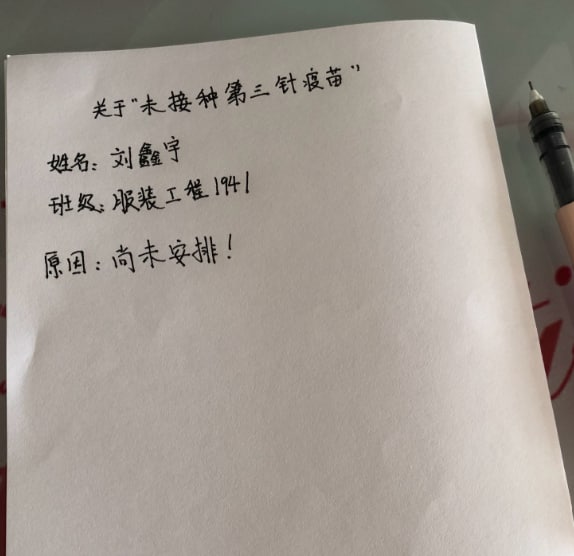 关于"未接种第三针疫苗"
姓名：刘鑫宇
班级：服装工程1941
原因：尚未安排！